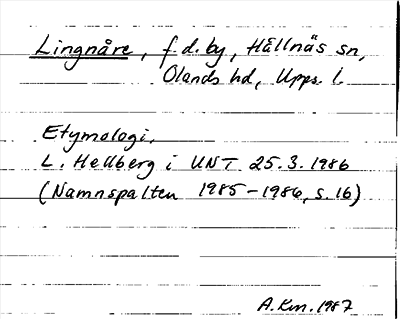 Lingnåre, f.d. by, Hållnäs sn,
Olands hd, Upps. l.
Etymologi.
L. Hellberg i UNT 25.3.1986
(Namnspalten 1985-1986, s. 16)
A. Km. 1987